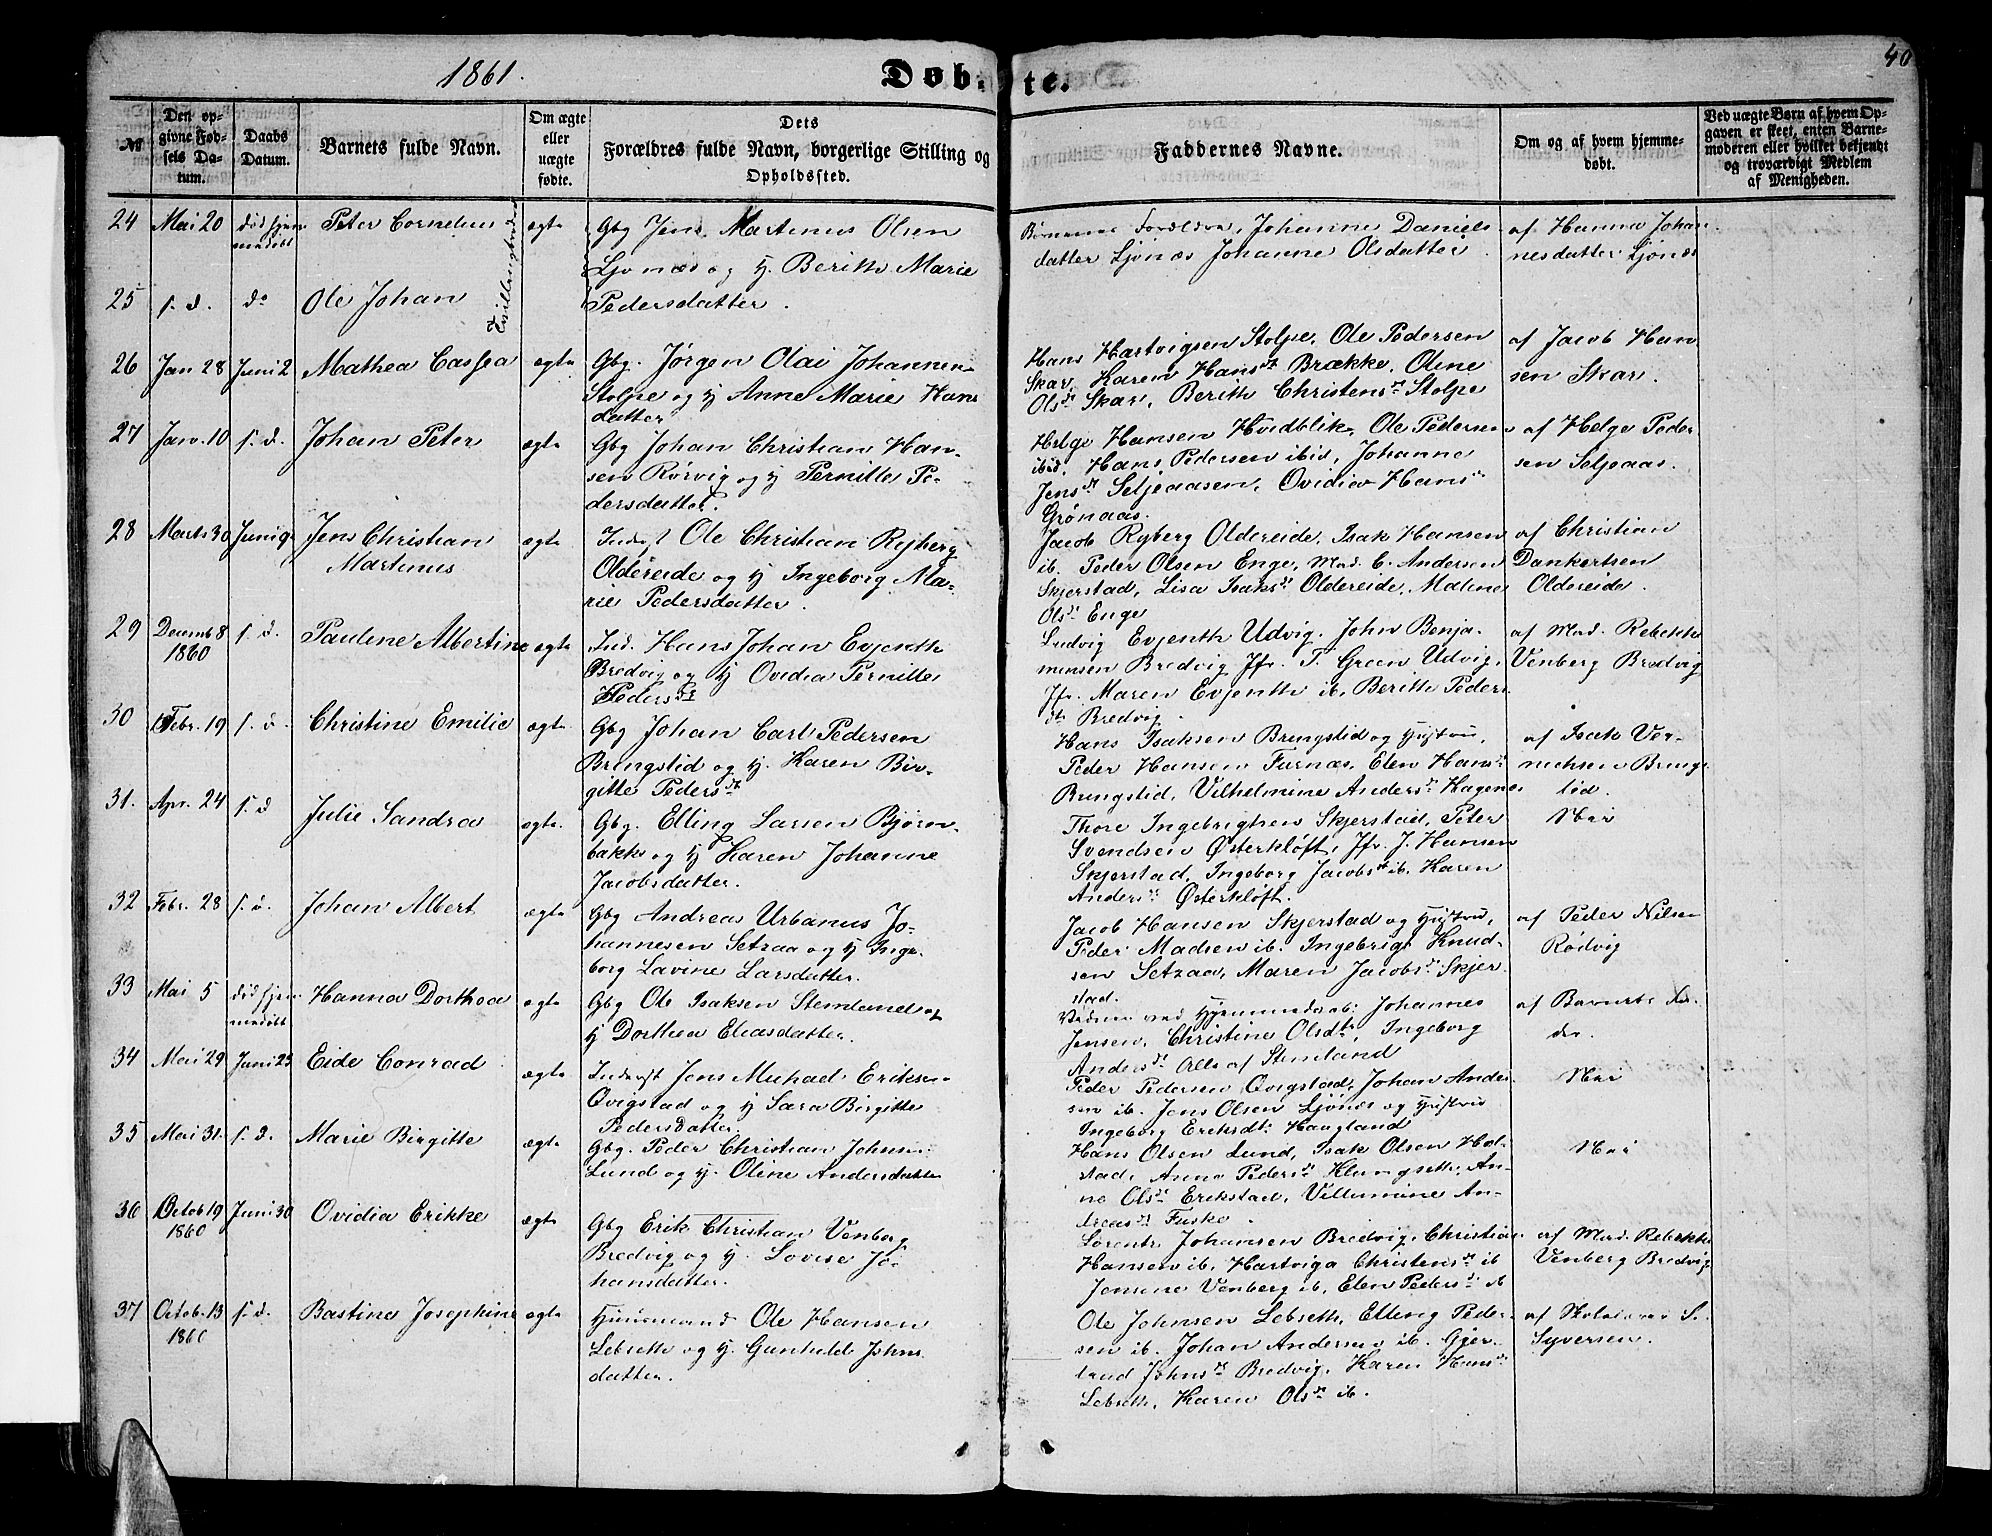 1861.
Døbte.
40
№
Den op-
givne Fød-
sels Da-
tum.
Daabs
Datum.
Barnets fulde Navn.
Om ægte
eller
uægte
fødte.
Dets
Forældres fulde Navn, borgerlige Stilling og
Opholdssted.
Faddernes Navne.
Om og af hvem hjemme-
døbt.
Ved uægte Børn af hvem Op-
gaven er skeet, enten Barne-
moderen eller hvilket bekjendt
og troværdigt Medlem
af Menigheden.
24 Mai 20 død hjem
medøbt
Peter Cornelius
Tvillingbrødre
ægte
Gbg Jens Martinus Olsen
Ljønæs og h Berith Marie
Pedersdatter.
Børnenes Forældre, Johanne Daniels
datter Ljønæs Johanne Olsdatter
af Hanna Johan
nesdatter Ljønæs
25 s. d. do Ole Johan
26 Jan 28 Juni 2 Mathea Cassea ægte
Gbg. Jørgen Olai Johannen-
Stolpe og h Anne Marie Hans
datter
Hans Hartvigsen Stolpe, Ole Pedersen
Skar, Karen Hansdt Brække, Olene
Olsdt Skar, Berith Christensdt Stolpe
af Jacob Han
sen Skar.
27 Janv. 10 s. d. Johan Peter ægte
Gbg Johan Christian Han-
sen Rørvig og h Pernille Pe-
dersdatter.
Helge Hansen Hvidblik, Ole Pedersen
ibid, Hans Pedersen ibid, Johanna
Jensdt Seljeaasen, Ovidia Hansdt
Grønaas.
af Helge Peder
sen Seljeaas.
28 Marts 30 Juni 9 Jens Christian
Martinus
ægte
Inds. Ole Christian Ryberg
Oldereide og h Ingeborg Ma-
rie Pedersdatter.
Jacob Ryberg Oldereide, Isak Hansen
ib. Peder Olsen Enge, Mad. C. Andersen
Skjerstad, Lisa Isaksdt Oldereide, Malene
Olsdt Enge
af Christian
Dankertsen
Oldereide
29 Decemb 8
1860
s. d. Pauline Albertine ægte
Ind. Hans Johan Evjenth
Bredvig og h Ovidia Pernille
Pedersdt
Ludvig Evjenth Udvig, John Benja-
minsen Bredvig Jfr. T. Green Udvig,
Jfr. Maren Evjenth ib, Berith Peders
dt Bredvig.
af Mad. Rebekka
Venberg Bredvig
30 Febr. 19 s. d. Christine Emilie ægte
Gbg Johan Carl Pedersen
Bringstid og h. Karen Bir-
gitte Pedersdt
Hans Isaksen Bringstid og Hustru,
Peder Hansen Furnæs, Elen Hansdt
Bringstid, Vilhelmine Andersdt Hagenes
af Isak Ver-
nichsen Bring
tid.
31. Apr. 24 s. d Julie Sandra ægte.
Gbg. Elling Larsen Bjørn-
bakk og h Karen Johanne
Jacobsdatter.
Thore Ingebrigtsen Skjerstad, Peter
Svendsen Østerkløft, Jfr. J. Hansen
Skjerstad, Ingeborg Jacobsdt ib. Karen
Andersdt Østerkløft.
Nei
32 Febr. 28 s. d. Johan Albert ægte
Gbg Andreas Urbanus Jo-
hannesen Setsaa og h Inge-
borg Lavine Larsdatter.
Jacob Hansen Skjerstad og Hustru,
Peder Madsen ib. Ingebrigt Knud-
sen Setsaa, Maren Jacobsdt Skjer
stad.
af Peder Nilsen
Rødvig
33 Mai 5 død hjem
medøbt
Hanna Dorthea ægte
Gbg Ole Isaksen Stemland og
h Dorthea Eliasdatter.
Vidner ved Hjemmedaab: Johannes
Jensen, Christine Olsdtr, Ingeborg
Andersdt Alle af Stemland
af Barnets Fa-
der.
34 Mai 29 Juni 23 Eide Conrad ægte
Inderst Jens Michael Eriksen
Qvigstad og h Sara Birgitte
Pedersdatter.
Peder Pedersen Qvigstad, Johan Ander
sen ib. Jens Olsen Ljønæs og Hustru
Ingeborg Eriksdt. Haugland
Nei
35 Mai 31. s. d. Marie Birgitte ægte
Gbg. Peder Christian Johnsen
Lund og h. Oline Andersdatter
Hans Olsen Lund, Isak Olsen Hol-
stad, Anne Pedersdt Klungseth, An-
ne Olsdt Erikstad, Villumine An-
dreasdt Fuske
Nei
36 Octob 19
1860
Juni 30 Ovidia Erikke ægte
Gbg Erik Christian Venberg
Bredvig og h. Lovise Jo-
hansdatter.
Lorents Johansen Bredvig, Christian
Hansen ib. Hartviga Christensdt ib
Jensine Venberg ib, Elen Pedersdt ib
af Mad. Rebekka
Venberg Bredvig
37 Octob. 13
1860
s. d. Bastine Josephine ægte
Huusmand Ole Hansen
Lebseth og h. Gunhild Johns
datter.
Ole Johnsen Lebseth, Elling Peder
sen ib. Johan Andersen ib. Gjer-
trud Johnsdt Bredvig, Karen Hansdt
Lebseth, Karen Olsdt ib.
af Skolelærer S.
Syversen.